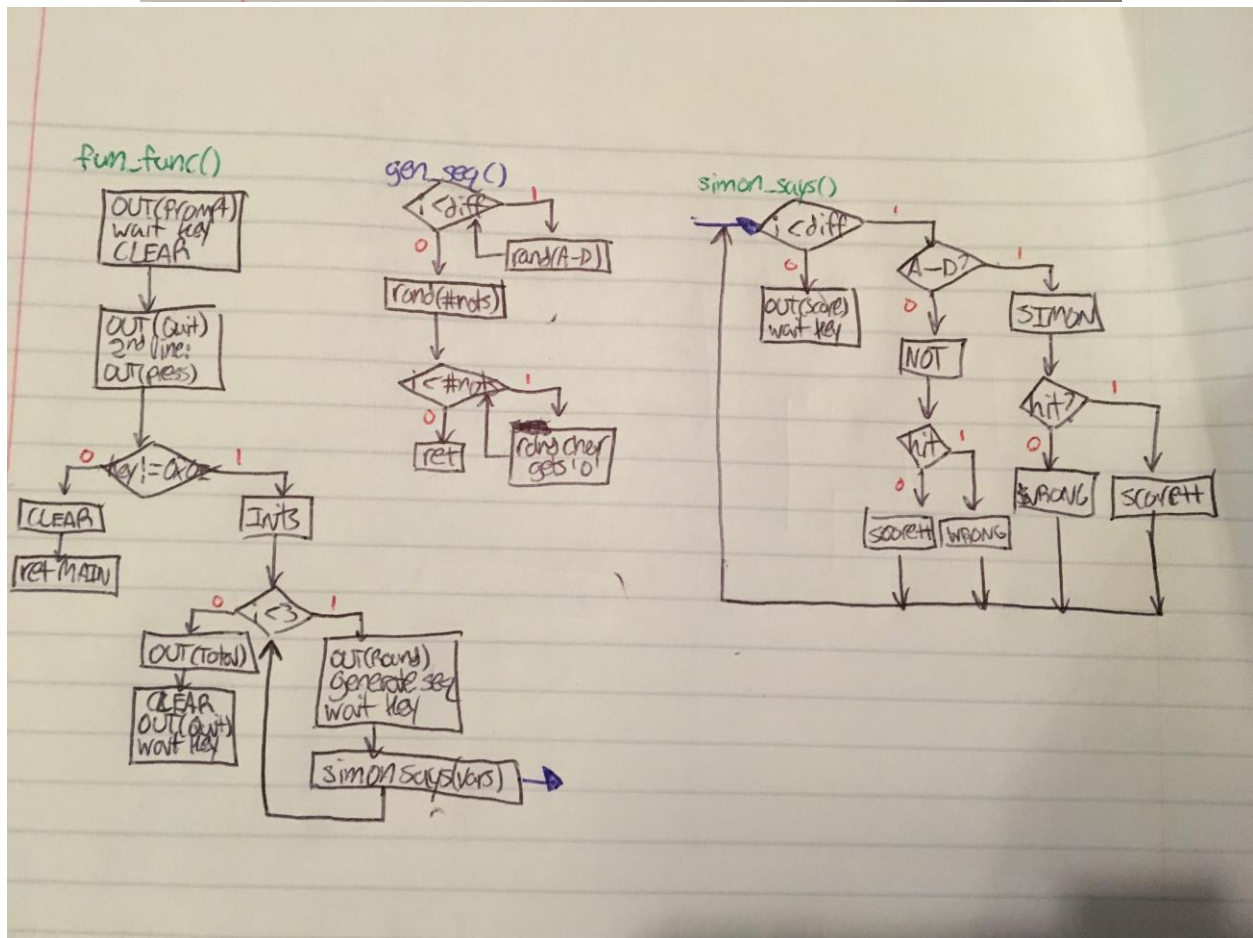 fun_func()
OUT(Prompt)
wait key
CLEAR
OUT(Quit)
2nd line:
OUT(press)
0
1
CLEAR
ret MAIN
Ints
i<3
0
1
OUT(Total)
CLEAR
OUT(Quit)
wait key
OUT(Round)
generate seq
wait key
simon says(vars)
gen_seq()
i<diff
1
0
rand(A-D)
rand(#nots)
i<#nots
1
0
ret
rand char
simon_says()
i<diff
1
0
OUT(score)
wait key
A-D?
1
0
NOT
hit
1
0
score++
WRONG
SIMON
hit?
1
0
WRONG
score++